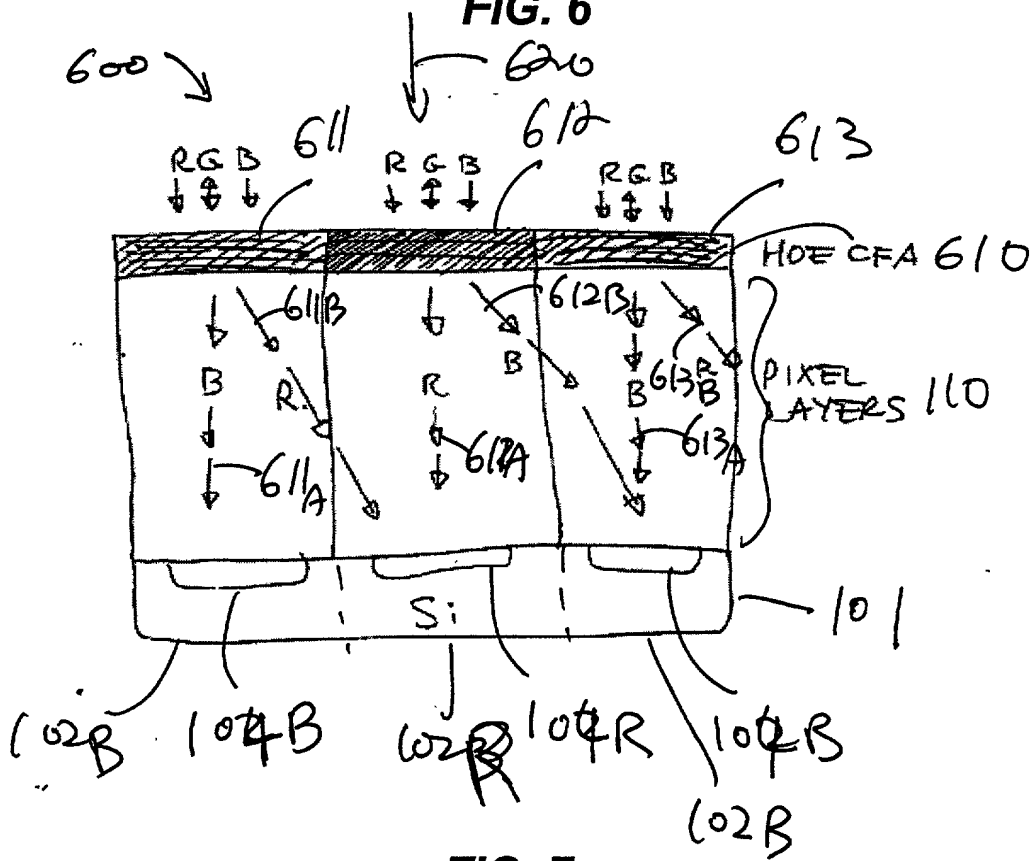 FIG. 6
600
620
611
612
613
R G B
R G B
R G B
HOE CFA 610
611B
612B
613B
B
R
R
B
B
PIXEL
LAYERS 110
611A
612A
613A
Si
101
102B
104B
102R
104R
104B
102B